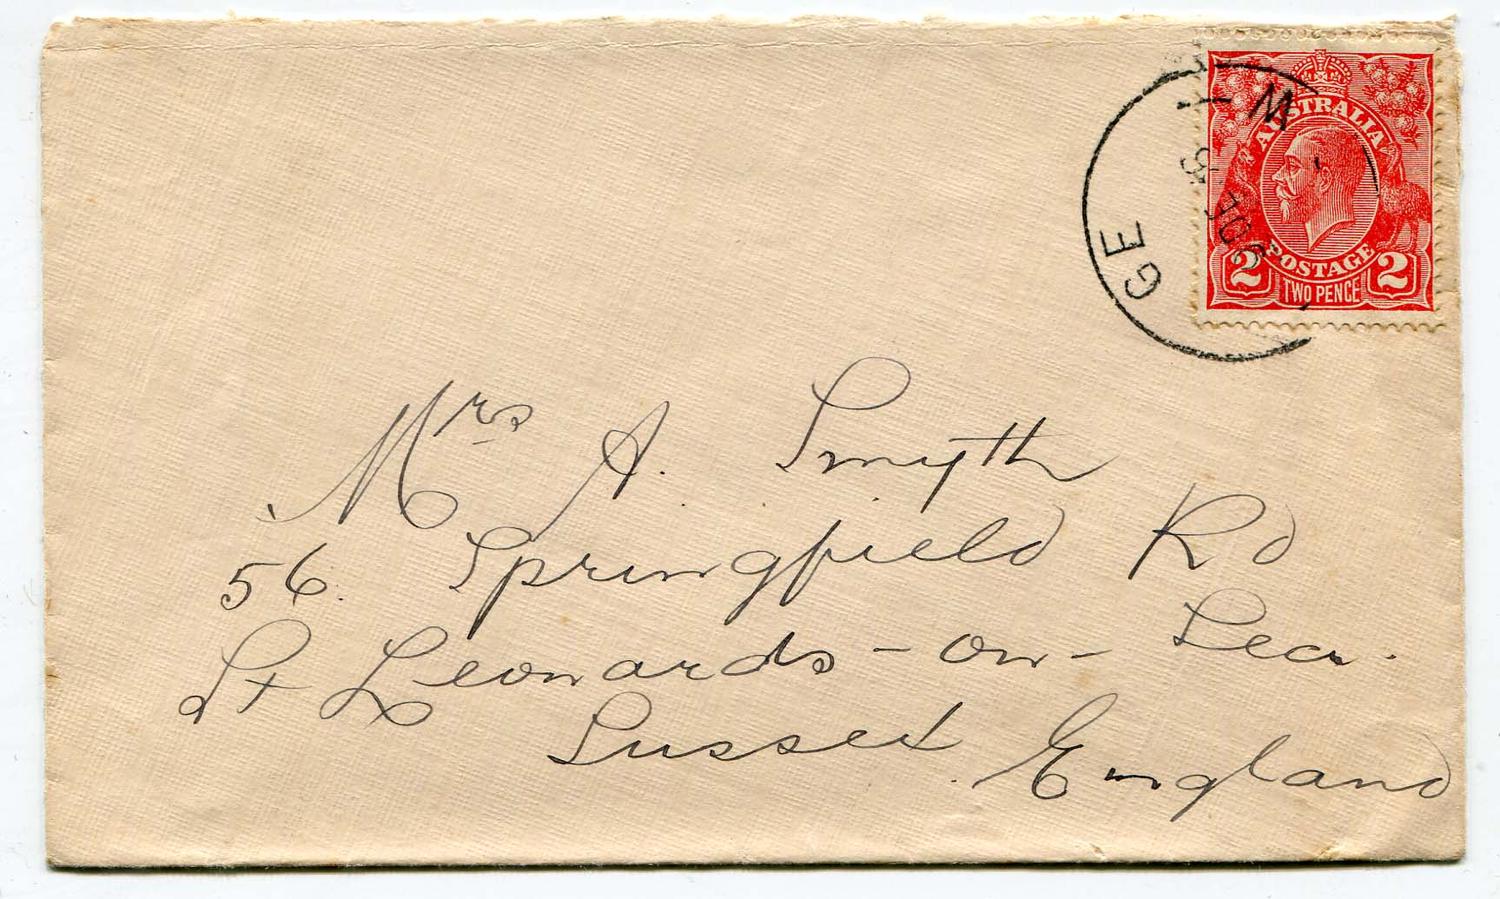 AUSTRALIA
POSTAGE
2 TWO PENCE 2
GE
W
Mrs A. Smyth
56. Springfield Rd
St Leonards-on-Sea.
Sussex. England